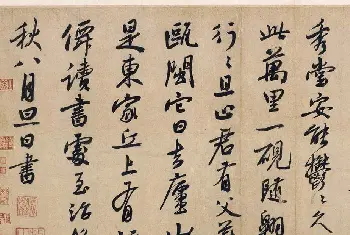 秀堂安能鬱〻久
此萬里一硯隨翱
行〻且止君有父
甌閩它日去廬山
是東家丘上有
僻讀書處至治
秋八月旦日書